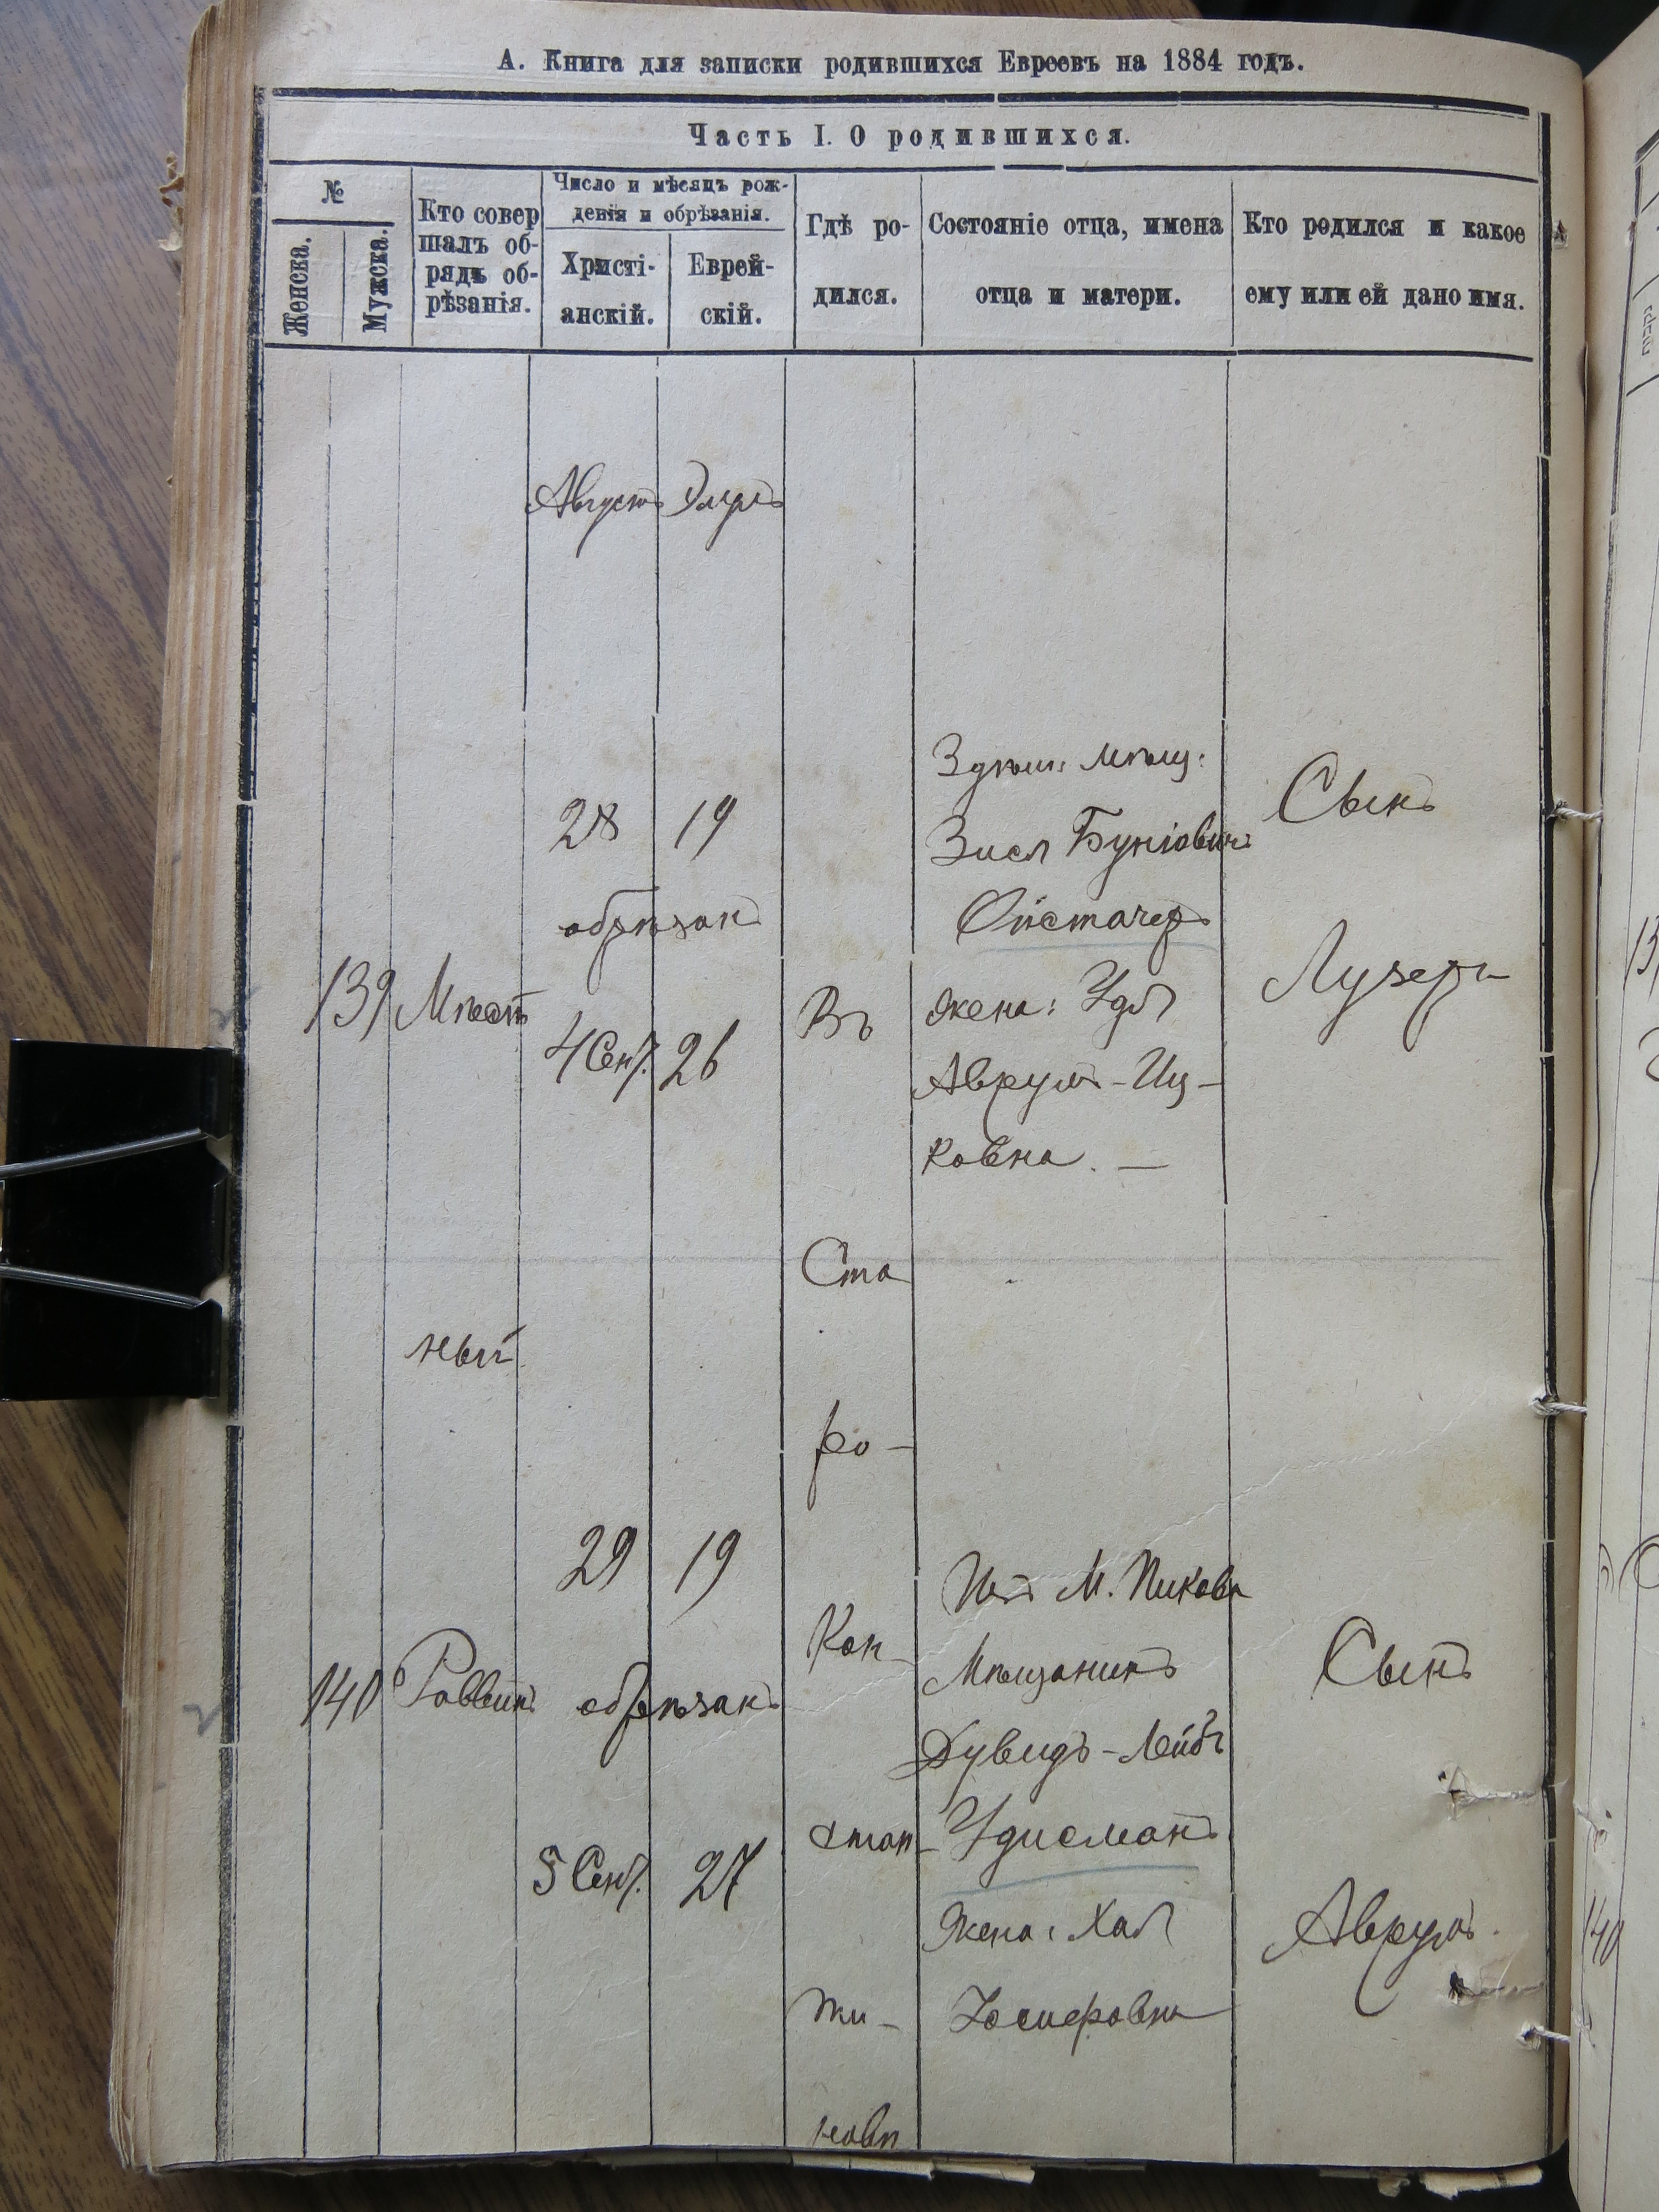 А. Книга для записки родившихся Евреевъ на 1884 годъ.
Часть I. О родившихся.
№
Женска.
Мужска.
Кто совер
шалъ об-
рядъ об-
рѣзанія.
Число и мѣсяцъ рож-
денія и обрѣзанія.
Христі-
анскій.
Еврей-
скій.
Гдѣ ро-
дился.
Состояніе отца, имена
отца и матери.
Кто родился и какое
ему или ей дано имя.
Августъ Элулъ
139
Мѣст
28 19
обрѣзанъ
4 Сен/. 26
Въ
Здѣш: мѣщ:
Зисл Бунiовичъ
жена: Удл
Аврумъ-Иц-
ковна. —
Сынъ
Лузеръ
ный
Ста
ро-
140
Раввинъ
29 19
обрѣзанъ
5 Сен/. 27
Кон-
стан-
ти-
новѣ
Изъ М. Пикова
Мѣщанинъ
Дувидъ-Лейбъ
Удисманъ
Жена: Хая
Іосиѳовна
Сынъ
Аврумъ.
140